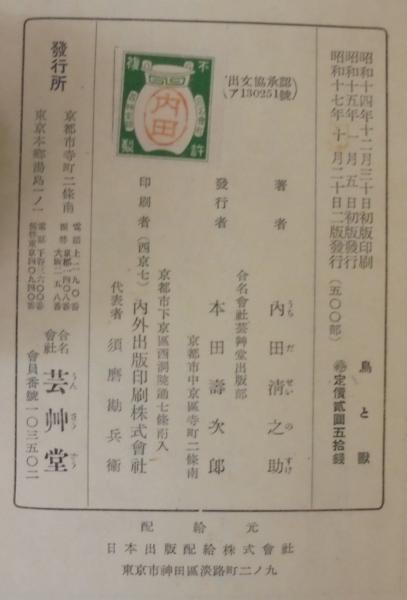 鳥と獸
定價貳圓五拾錢
昭和十四年十二月三十日初版印刷
昭和十五年一月五日初版發行
昭和十七年十月二十日二版發行(五〇〇部)
(出文協承認
ア130251號)
著者 内田清之助
うちだせいのすけ
合名會社芸艸堂出版部
發行者 本田壽次郎
京都市中京區寺町二條南
京都市下京區西洞院通七條南入
印刷者(西京七) 内外出版印刷株式會社
代表者 須磨勘兵衞
不許複製
内田
發行所
京都市寺町二條南
東京本鄕湯島一ノ一
合名會社 芸艸堂
うんさうだう
會員番號一〇三五〇二
配給元
日本出版配給株式會社
東京市神田區淡路町二ノ九